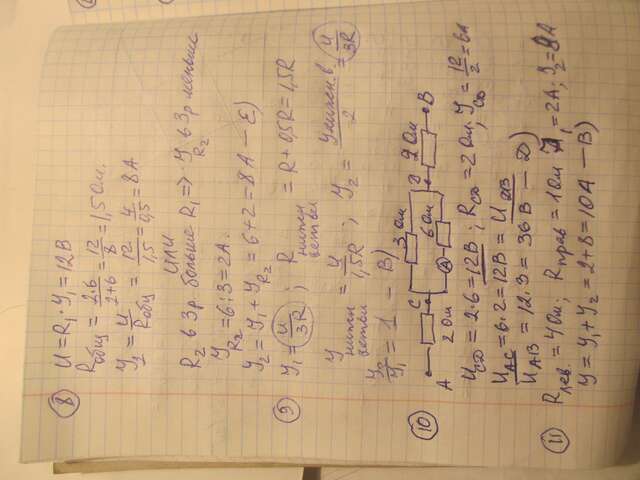 8
U = R₁ · У₁ = 12В
Rобщ = 2·6/2+6 = 12/8 = 1,5 Ом.
У₁ = U/Rобщ = 12/1,5 = 4/0,5 = 8А
или
R₂ в 3р больше R₁ => У R₂ в 3р меньше
У R₂ = 6:3 = 2А.
У₂ = У₁ + У R₂ = 6+2 = 8А – Е)
9
У₁ = U/3R ; R нижн ветви = R + 0,5R = 1,5R
У нижн ветви = U/1,5R ; У₂ = = U/3R
У₂/У₁ = 1 – В)
10
A 2 Ом C 3 Ом 6 Ом A 2 Ом B
UСD = 2·6 = 12В ; RСD = 2 Ом. УСD = 12/2 = 6А
UAC = 6·2 = 12В = UDB
UAB = 12·3 = 36В – D)
11
Rлев. = 4 Ом; Rправ = 1 Ом У₁ = 2А; У₂ = 8А
У = У₁ + У₂ = 2+8 = 10А – В)